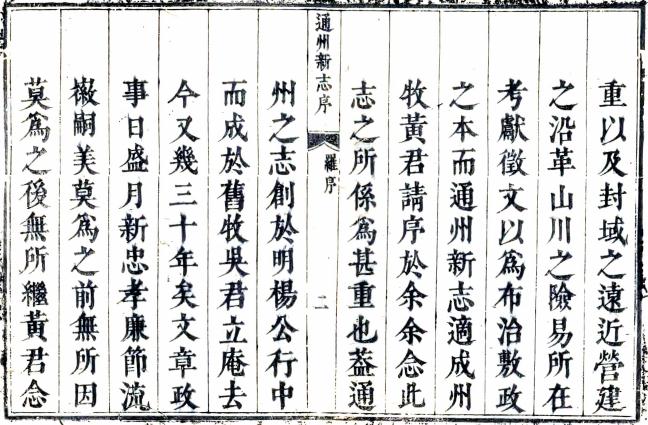 重以及封域之遠近營建
之沿革山川之險易所在
考獻徵文以爲布治敷政
之本而通州新志適成州
牧黃君請序於余余念此
志之所係爲甚重也葢通
通州新志序
羅序
二
州之志創於明楊公行中
而成於舊牧吳君立庵去
今又幾三十年矣文章政
事日盛月新忠孝廉節流
嗣美莫爲之前無所因
莫爲之後無所繼黃君念